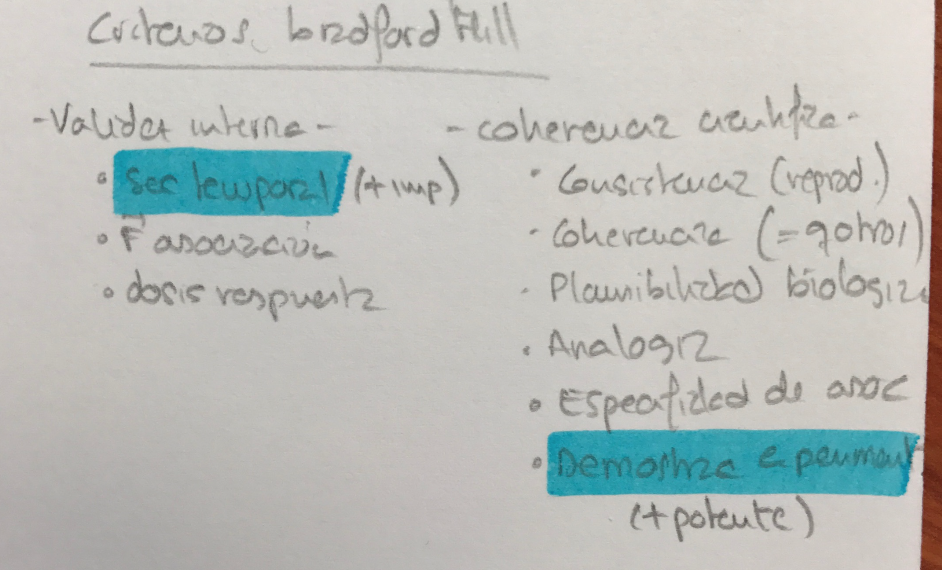 Criterios bradford Hill
- Validez interna -
• Sec temporal (+ imp)
• F asociación
• dosis respuesta
- coherencia científica -
• Consistencia (reprod.)
• Coherencia (= q otros)
• Plausibilidad biológica
• Analogía
• Especifidad de asoc
• Demostrac experiment
(+ potente)